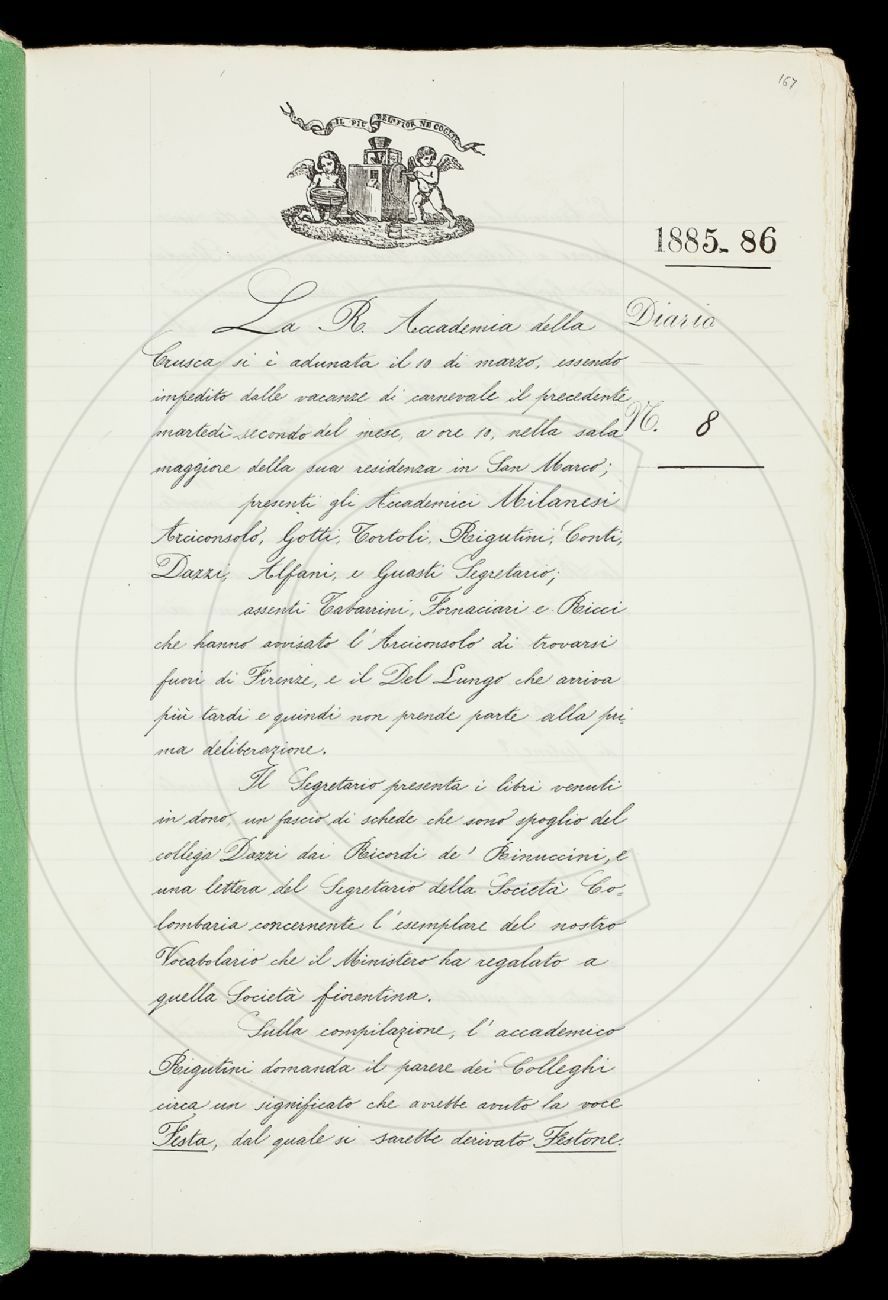 167
IL PIÙ BEL FIOR NE COGLIE
1885-86
Diario
N. 8
La R. Accademia della
Crusca si è adunata il 10 di marzo, essendo
impedito dalle vacanze di carnevale il precedente
martedì secondo del mese, a ore 10, nella sala
maggiore della sua residenza in San Marco;
presenti gli Accademici Milanesi
Arciconsolo, Gotti, Tortoli, Rigutini, Conti,
Dazzi, Alfani, e Guasti Segretario;
assenti Tabarrini, Fornaciari e Ricci
che hanno avvisato l'Arciconsolo di trovarsi
fuori di Firenze, e il Del Lungo che arriva
più tardi e quindi non prende parte alla pri-
ma deliberazione.
Il Segretario presenta i libri venuti
in dono, un fascio di schede che sono spoglio del
collega Dazzi dai Ricordi de' Rinuccini, e
una lettera del Segretario della Società Co-
lombaria concernente l'esemplare del nostro
Vocabolario che il Ministero ha regalato a
quella Società fiorentina.
Sulla compilazione, l'accademico
Rigutini domanda il parere dei Colleghi
circa un significato che avrebbe avuto la voce
Festa, dal quale si sarebbe derivato Festone.